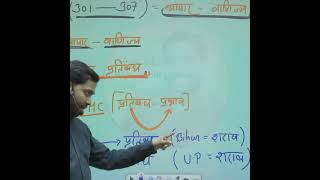 (301 — 307) = व्यापार - वाणिज्य
व्यापार - वाणिज्य
प्रतिबंध
HC [प्रतिबंध - प्रभाव]
→ Bihar = शराब
(U.P = शराब